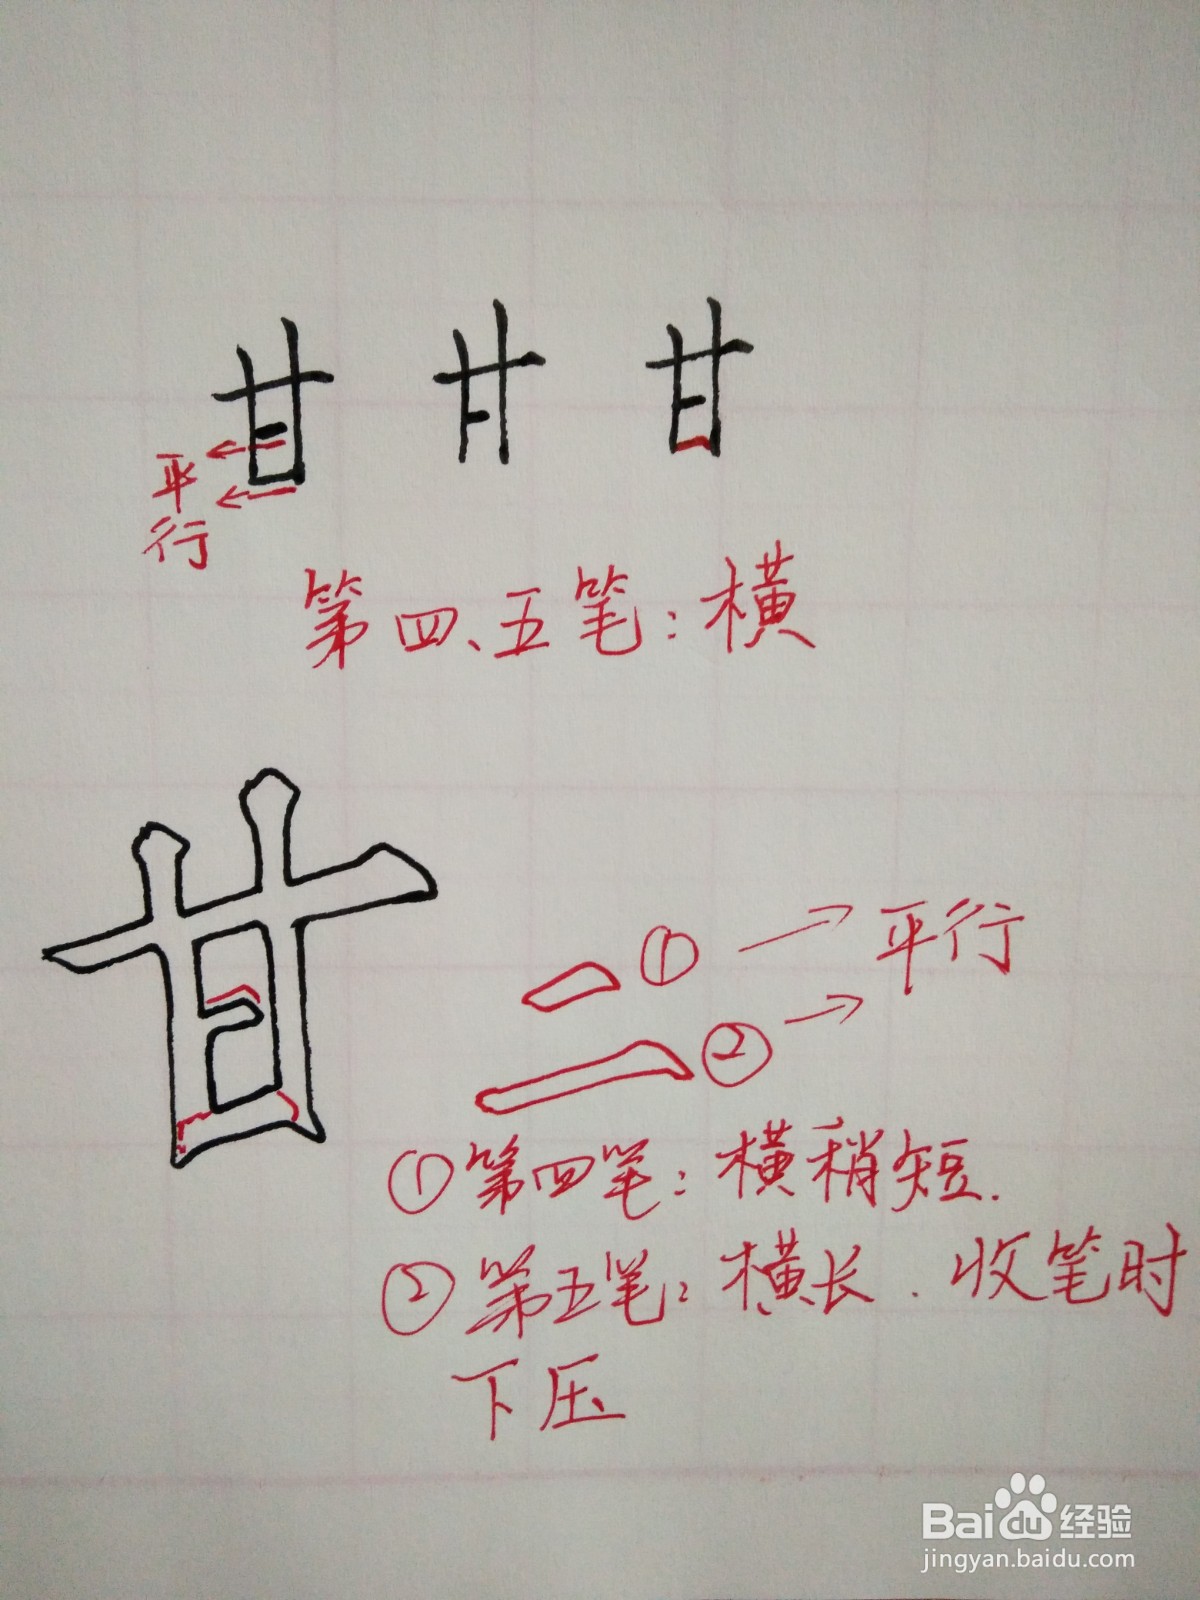 甘 甘 甘
平行
第四、五笔:横
甘
① 平行
②
①第四笔:横稍短.
②第五笔:横长.收笔时
下压
Bai du 经验
jingyan.baidu.com